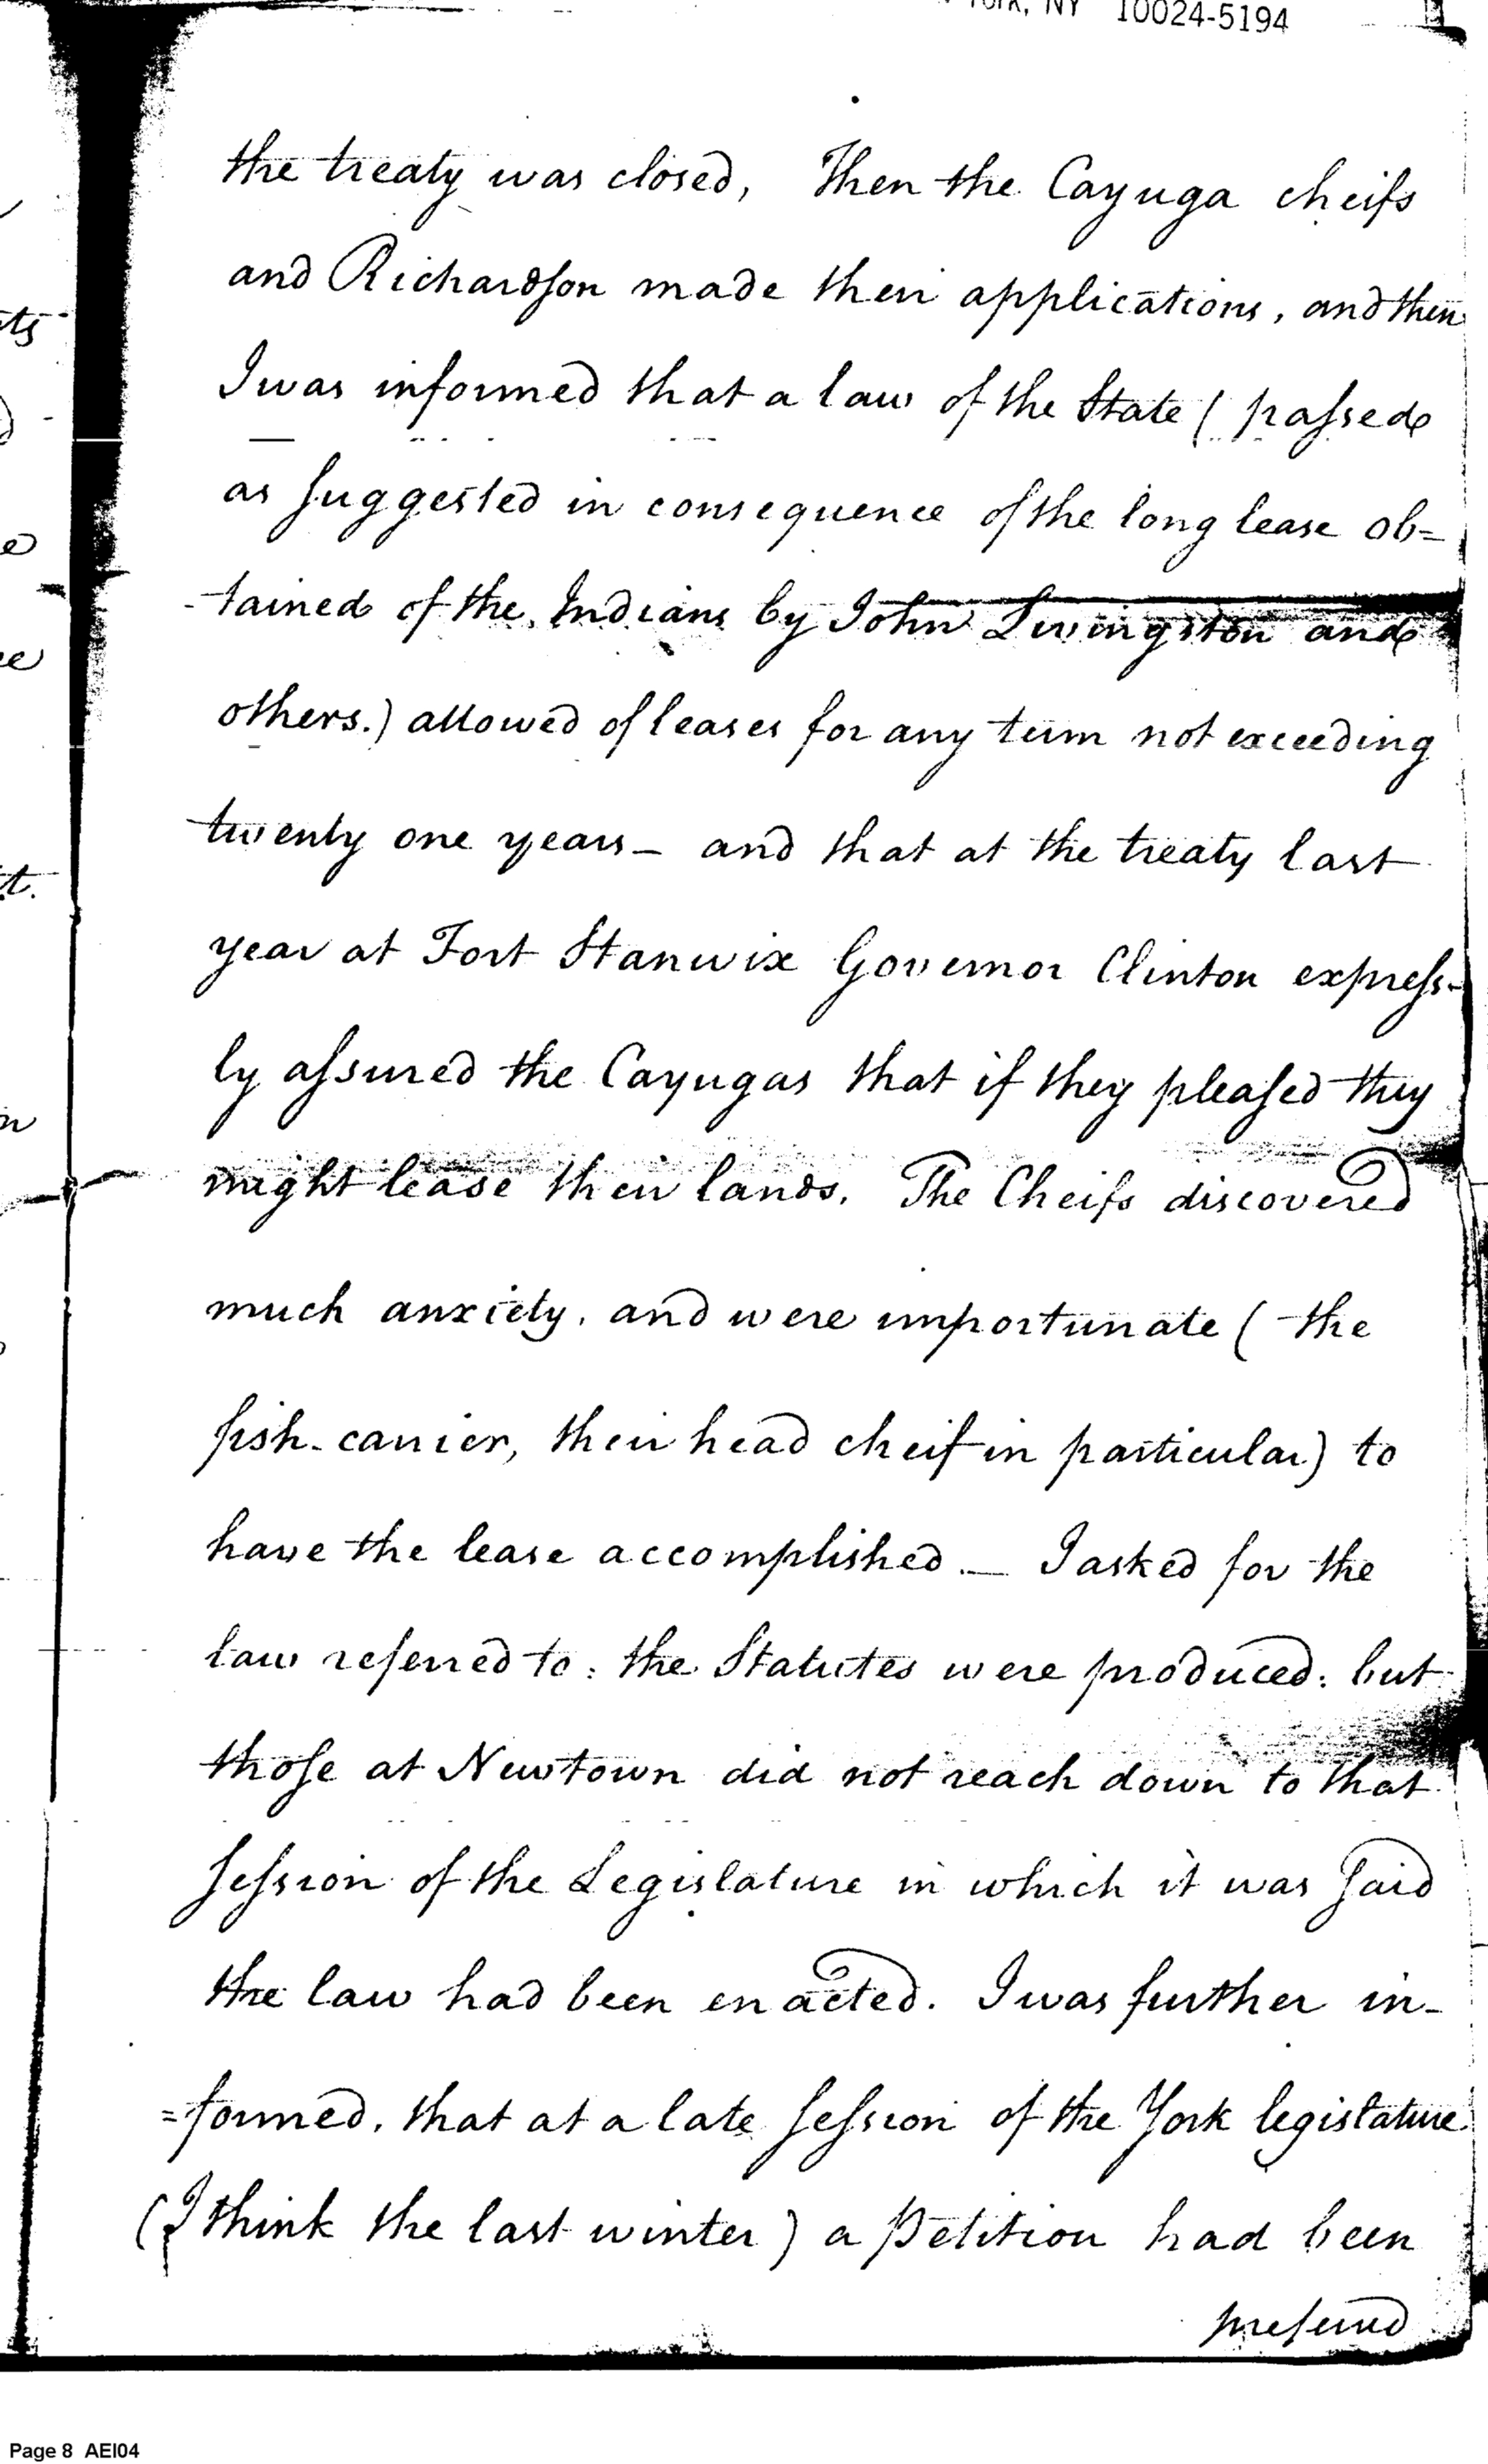 York, NY 10024-5194
the treaty was closed, Then the Cayuga cheifs
and Richardson made their applications, and then
I was informed that a law of the State (passed
as suggested in consequence of the long lease ob=
-tained of the Indians by John Livingston and
others.) allowed of leases for any term not exceeding
twenty one years – and that at the treaty last
year at Fort Stanwix Governor Clinton express-
ly assured the Cayugas that if they pleased they
might lease their lands. The Cheifs discovered
much anxiety, and were importunate (the
fish-carrier, their head cheif in particular) to
have the lease accomplished. — I asked for the
law referred to: the Statutes were produced: but
those at Newtown did not reach down to that
session of the Legislature in which it was said
the law had been enacted. I was further in-
=formed, that at a late session of the York legislature
(I think the last winter) a petition had been
prefered
Page 8 AEI04